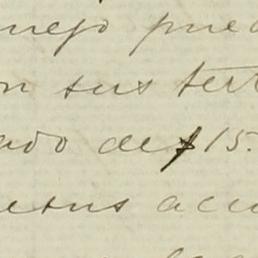 nejo pue
n sus ter
ado de $15.
etus acc